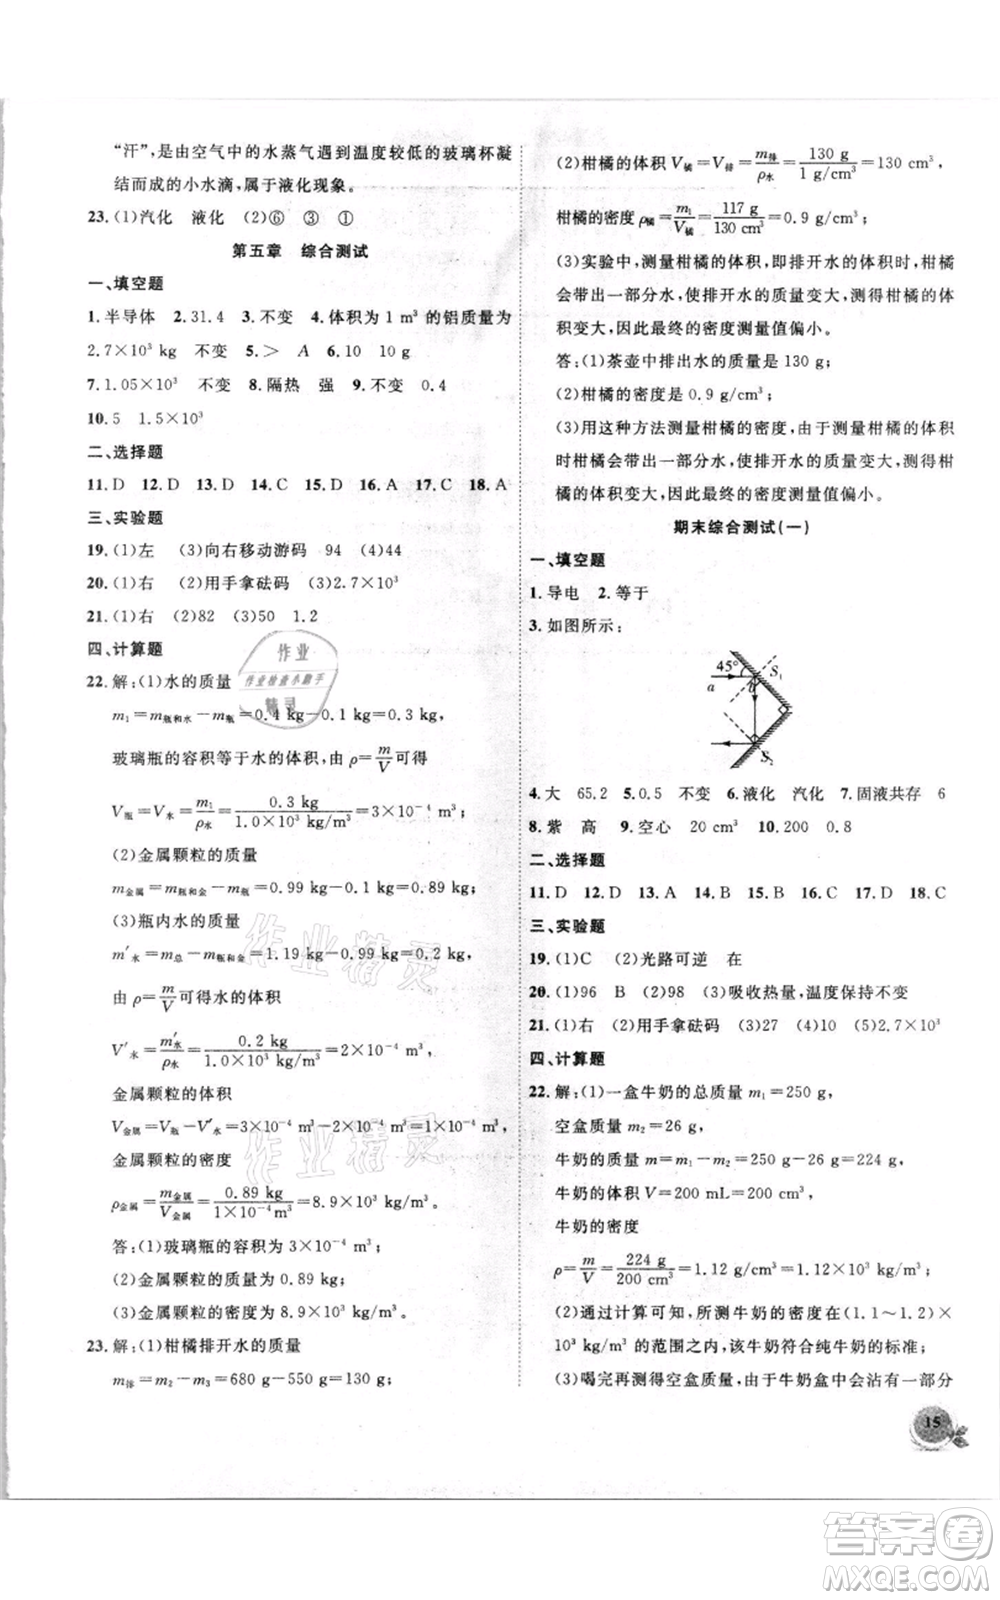 “汗”，是由空气中的水蒸气遇到温度较低的玻璃杯凝
结而成的小水滴，属于液化现象。
23.(1)汽化　液化　(2)⑥　③　①
第五章　综合测试
一、填空题
1.半导体　2.31.4　3.不变　4.体积为 1 m³ 的铝质量为
2.7×10³ kg　不变　5.＞　A　6.10　10 g
7.1.05×10³　不变　8.隔热　强　9.不变　0.4
10.5　1.5×10³
二、选择题
11.D　12.D　13.D　14.C　15.D　16.A　17.C　18.A
三、实验题
19.(1)左　(3)向右移动游码　94　(4)44
20.(1)右　(2)用手拿砝码　(3)2.7×10³
21.(1)右　(2)82　(3)50　1.2
四、计算题
22.解：(1)水的质量
m₁＝m瓶和水－m瓶＝0.4 kg－0.1 kg＝0.3 kg，
玻璃瓶的容积等于水的体积，由 ρ＝m/V 可得
V瓶＝V水＝m₁/ρ水＝0.3 kg/1.0×10³ kg/m³＝3×10⁻⁴ m³；
(2)金属颗粒的质量
m金属＝m瓶和金－m瓶＝0.99 kg－0.1 kg＝0.89 kg；
(3)瓶内水的质量
m′水＝m总－m瓶和金＝1.19 kg－0.99 kg＝0.2 kg，
由 ρ＝m/V 可得水的体积
V′水＝m′水/ρ水＝0.2 kg/1.0×10³ kg/m³＝2×10⁻⁴ m³，
金属颗粒的体积
V金属＝V瓶－V′水＝3×10⁻⁴ m³－2×10⁻⁴ m³＝1×10⁻⁴ m³，
金属颗粒的密度
ρ金属＝m金属/V金属＝0.89 kg/1×10⁻⁴ m³＝8.9×10³ kg/m³。
答：(1)玻璃瓶的容积为 3×10⁻⁴ m³；
(2)金属颗粒的质量为 0.89 kg；
(3)金属颗粒的密度为 8.9×10³ kg/m³。
23.解：(1)柑橘排开水的质量
m排＝m₂－m₃＝680 g－550 g＝130 g；
(2)柑橘的体积 V橘＝V排＝m排/ρ水＝130 g/1 g/cm³＝130 cm³，
柑橘的密度 ρ橘＝m₁/V橘＝117 g/130 cm³＝0.9 g/cm³；
(3)实验中，测量柑橘的体积，即排开水的体积时，柑橘
会带出一部分水，使排开水的质量变大，测得柑橘的体
积变大，因此最终的密度测量值偏小。
答：(1)茶壶中排出水的质量是 130 g；
(2)柑橘的密度是 0.9 g/cm³；
(3)用这种方法测量柑橘的密度，由于在测量柑橘体积
时柑橘会带出一部分水，使排开水的质量变大，测得柑
橘的体积变大，因此最终的密度测量值偏小。
期末综合测试(一)
一、填空题
1.导电　2.等于
3.如图所示：
45° S₁
a b
S₂
4.大　65.2　5.0.5　不变　6.液化　汽化　7.固液共存　6
8.紫　高　9.空心　20 cm³　10.200　0.8
二、选择题
11.D　12.D　13.A　14.B　15.B　16.B　17.D　18.C
三、实验题
19.(1)C　(2)光路可逆　在
20.(1)96　B　(2)98　(3)吸收热量，温度保持不变
21.(1)右　(2)用手拿砝码　(3)27　(4)10　(5)2.7×10³
四、计算题
22.解：(1)一盒牛奶的总质量 m₁＝250 g，
空盒质量 m₂＝26 g，
牛奶的质量 m＝m₁－m₂＝250 g－26 g＝224 g，
牛奶的体积 V＝200 mL＝200 cm³，
牛奶的密度
ρ＝m/V＝224 g/200 cm³＝1.12 g/cm³＝1.12×10³ kg/m³；
(2)通过计算可知，所测牛奶的密度在(1.1～1.2)×
10³ kg/m³ 的范围之内，该牛奶符合纯牛奶的标准；
(3)喝完再测得空盒质量，由于牛奶盒中会沾有一部分
15
作业
作业检查小助手
精灵
作业精灵
作业精灵
答案卷
MXQE.COM